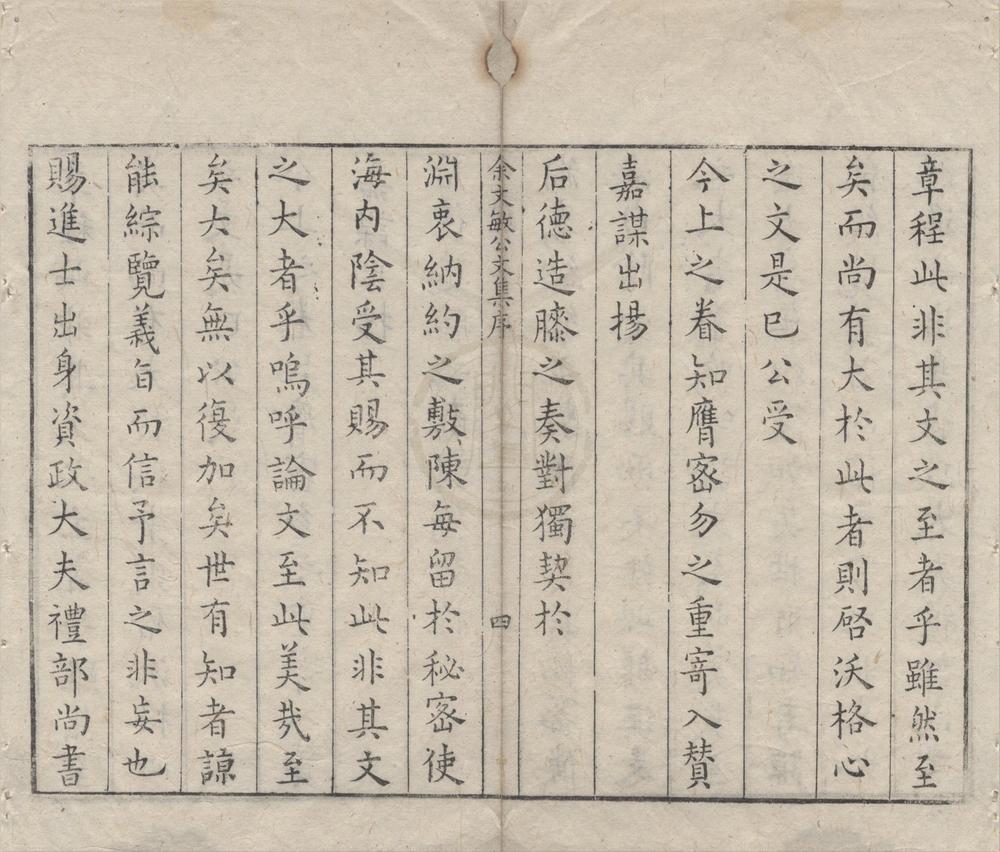 章程此非其文之至者乎雖然至
矣而尚有大於此者則啓沃格心
之文是已公受
今上之眷知膺密勿之重寄入賛
嘉謀出揚
后德造膝之奏對獨契於
余文敏公文集序 四
淵衷納約之敷陳每留於秘密使
海内陰受其賜而不知此非其文
之大者乎嗚呼論文至此美哉至
矣大矣無以復加矣世有知者諒
能綜覽義旨而信予言之非妄也
賜進士出身資政大夫禮部尚書